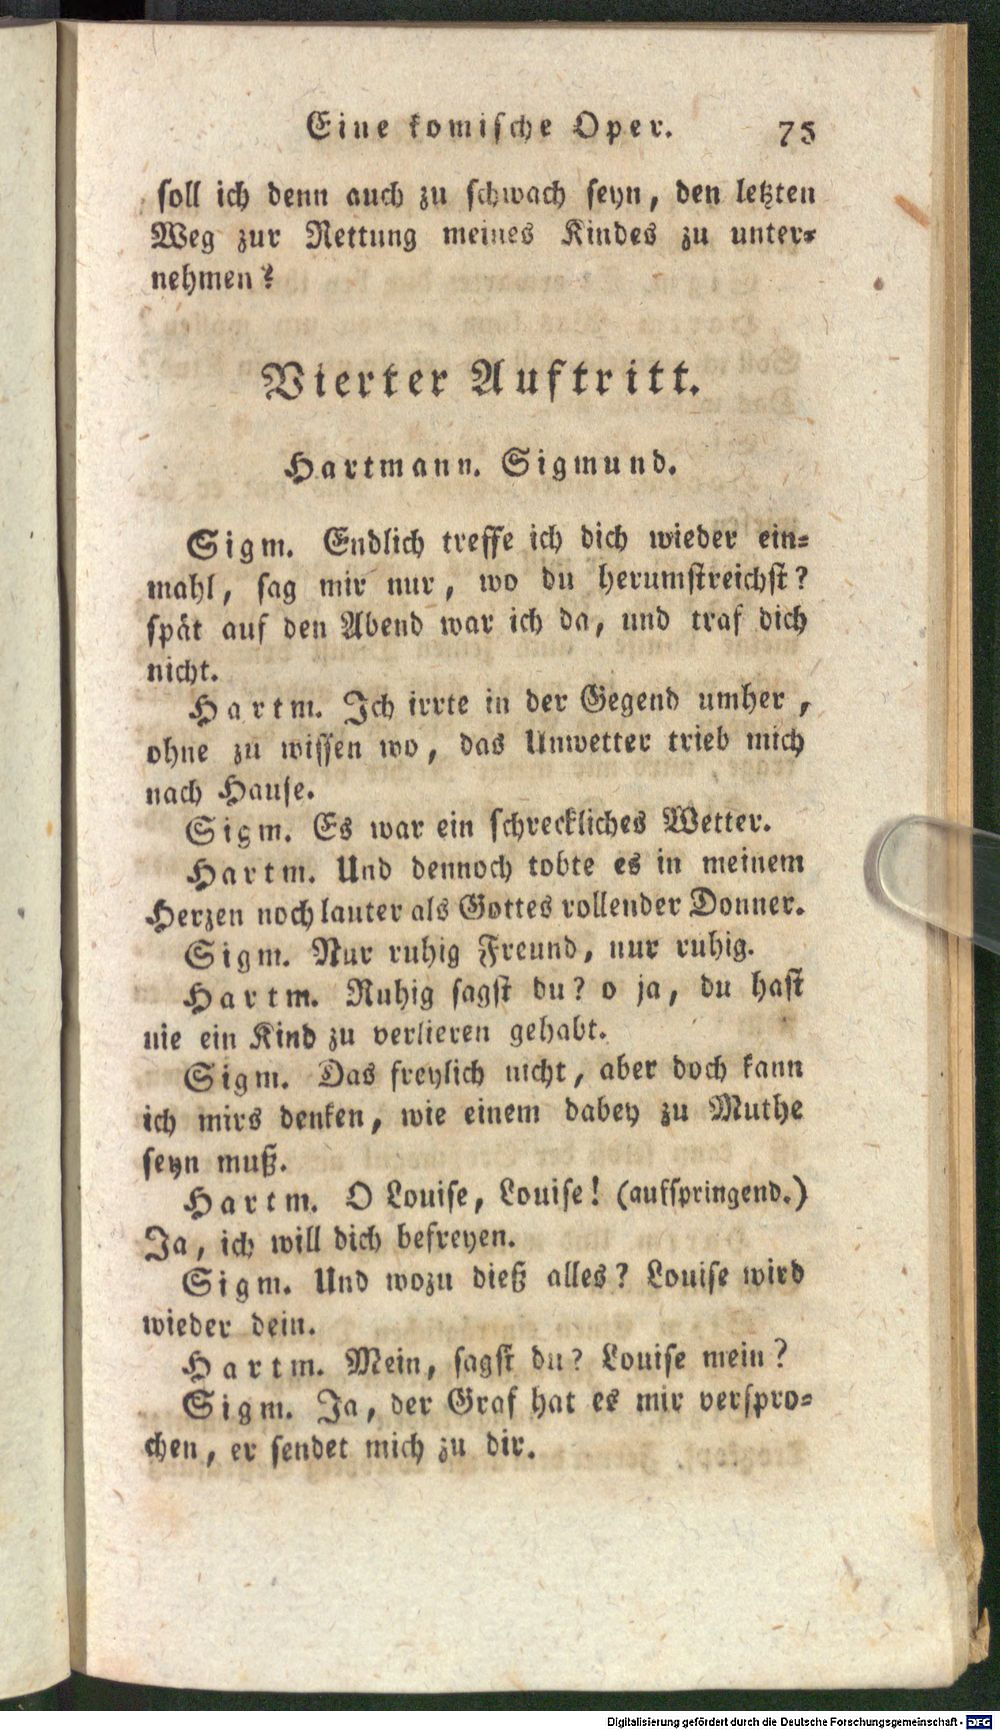 Eine komische Oper. 75
soll ich denn auch zu schwach seyn, den letzten
Weg zur Rettung meines Kindes zu unter-
nehmen?
Vierter Auftritt.
Hartmann. Sigmund.
Sigm. Endlich treffe ich dich wieder ein-
mahl, sag mir nur, wo du herumstreichst?
spät auf den Abend war ich da, und traf dich
nicht.
Hartm. Ich irrte in der Gegend umher,
ohne zu wissen wo, das Unwetter trieb mich
nach Hause.
Sigm. Es war ein schreckliches Wetter.
Hartm. Und dennoch tobte es in meinem
Herzen noch lauter als Gottes rollender Donner.
Sigm. Nur ruhig Freund, nur ruhig.
Hartm. Ruhig sagst du? o ja, du hast
nie ein Kind zu verlieren gehabt.
Sigm. Das freylich nicht, aber doch kann
ich mirs denken, wie einem dabey zu Muthe
seyn muß.
Hartm. O Louise, Louise! (aufspringend.)
Ja, ich will dich befreyen.
Sigm. Und wozu dieß alles? Louise wird
wieder dein.
Hartm. Mein, sagst du? Louise mein?
Sigm. Ja, der Graf hat es mir verspro-
chen, er sendet mich zu dir.
Digitalisierung gefördert durch die Deutsche Forschungsgemeinschaft - DFG